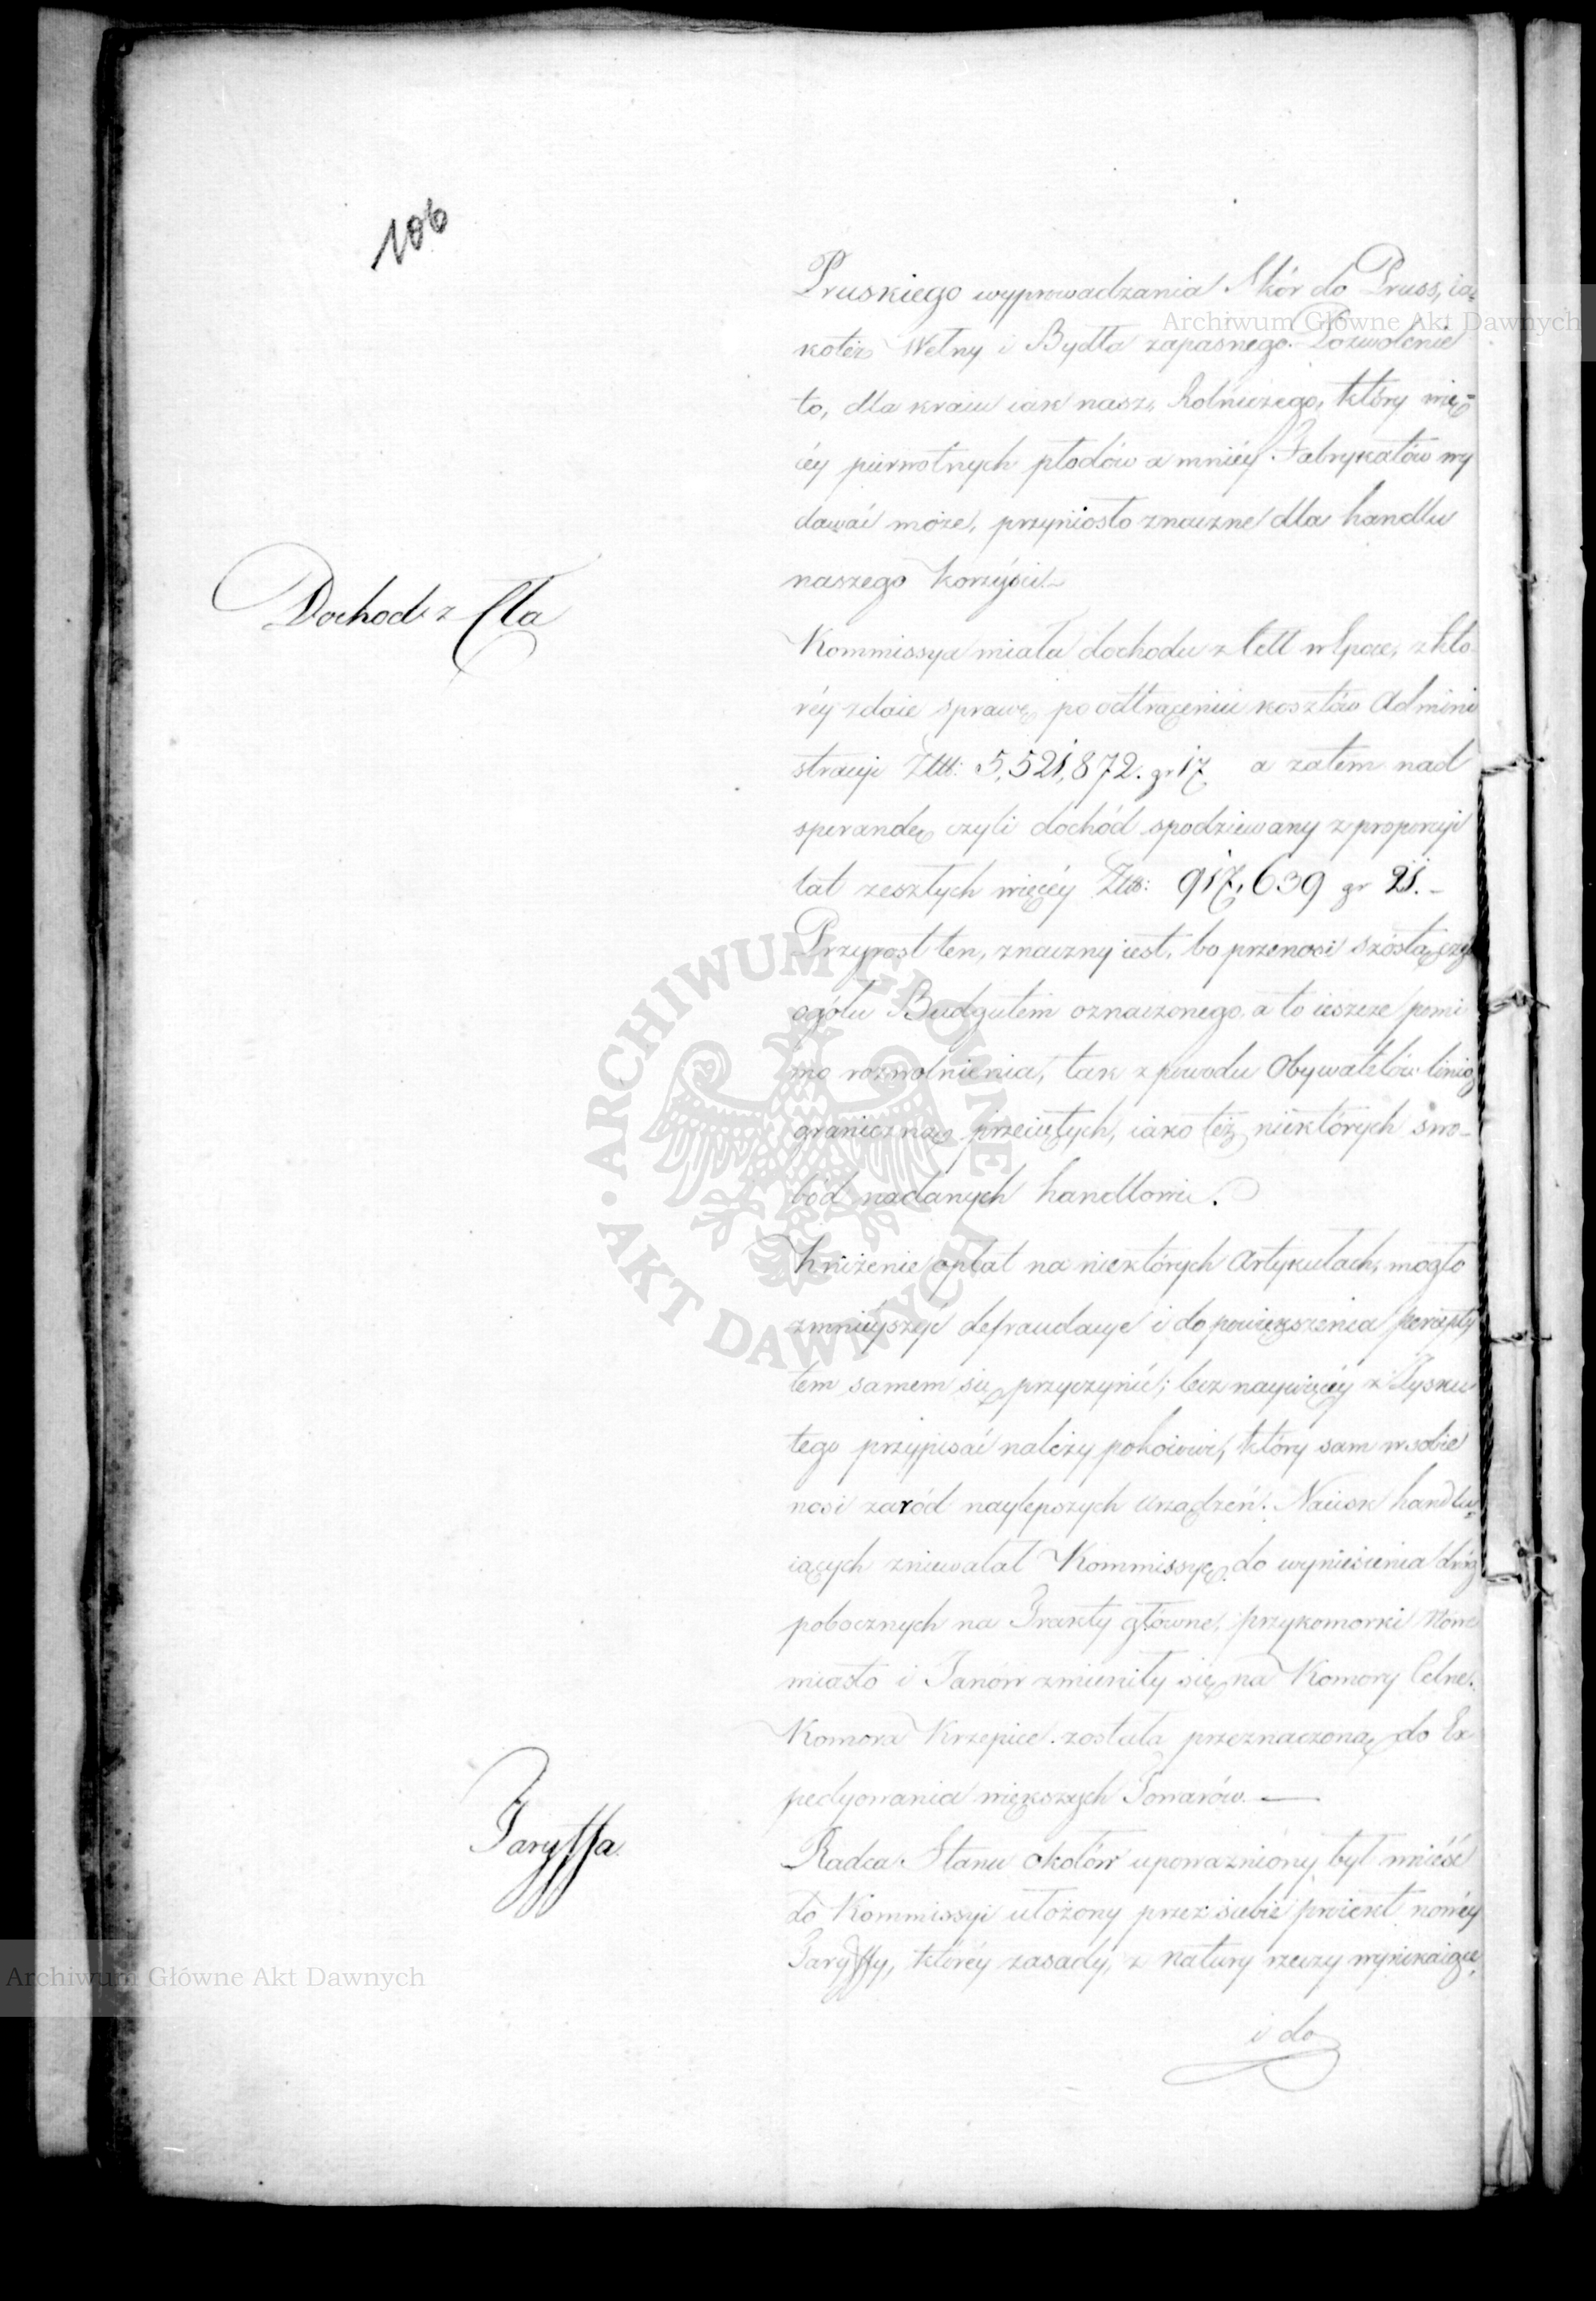 106
Pruskiego wyprowadzania Skór do Pruss, ia-
koteż Wełny i Bydła zapasnego. Pozwolenie
to, dla kraiu iak nasz, Rolniczego, który wię-
céy pierwotnych płodów a mniéy Fabrykatów wy
dawać może, przyniosło znaczne dla handlu
naszego korzyści.-
Dochod z Cła
Kommissya miała dochodu z Cełł w Epoce, z któ-
réy zdaie sprawę, po odtrąceniu kosztów Admini
stracyi Złłł: 5,521,872. gr 17 a zatem nad
sperandę czyli dochód spodziewany z proporcyi
lat zeszłych więcéy Złłł: 917,639 gr 21.-
Przyrost ten, znaczny iest, bo przenosi szóstą czę
ogółu Budgetem oznaczonego, a to ieszcze pomi
mo rozwolnienia, tak z powodu Obywatelów linią
graniczną przeciętych, iako też niektórych swo-
bód nadanych handlowi.
Zniżenie opłat na niektórych Artykułach, mogło
zmnieyszyć defraudacye i do powiększenia percepty
tem samem się przyczynić; lecz naywięcéy z Zysku
tego przypisać należy pokoiowi, który sam w sobie
nosi zaród naylepszych urządzeń. Nacisk handlu-
iących zniewalał Kommissyę do wyniesienia dróg
pobocznych na Trakty główne, przykomorki Nowe
miasto i Janów zmieniły się na Komory Celne.
Komora Krzepice została przeznaczoną do Ex
pedyowania większych Towarów. —
Taryffa
Radca Stanu Okołów upoważniony był wnieść
do Kommissyi ułożony przez siebie proiekt nowéy
Taryffy, któréy zasady, z natury rzeczy wynikaiące,
i do
Archiwum Główne Akt Dawnych
ARCHIWUM GŁÓWNE AKT DAWNYCH
Archiwum Główne Akt Dawnych